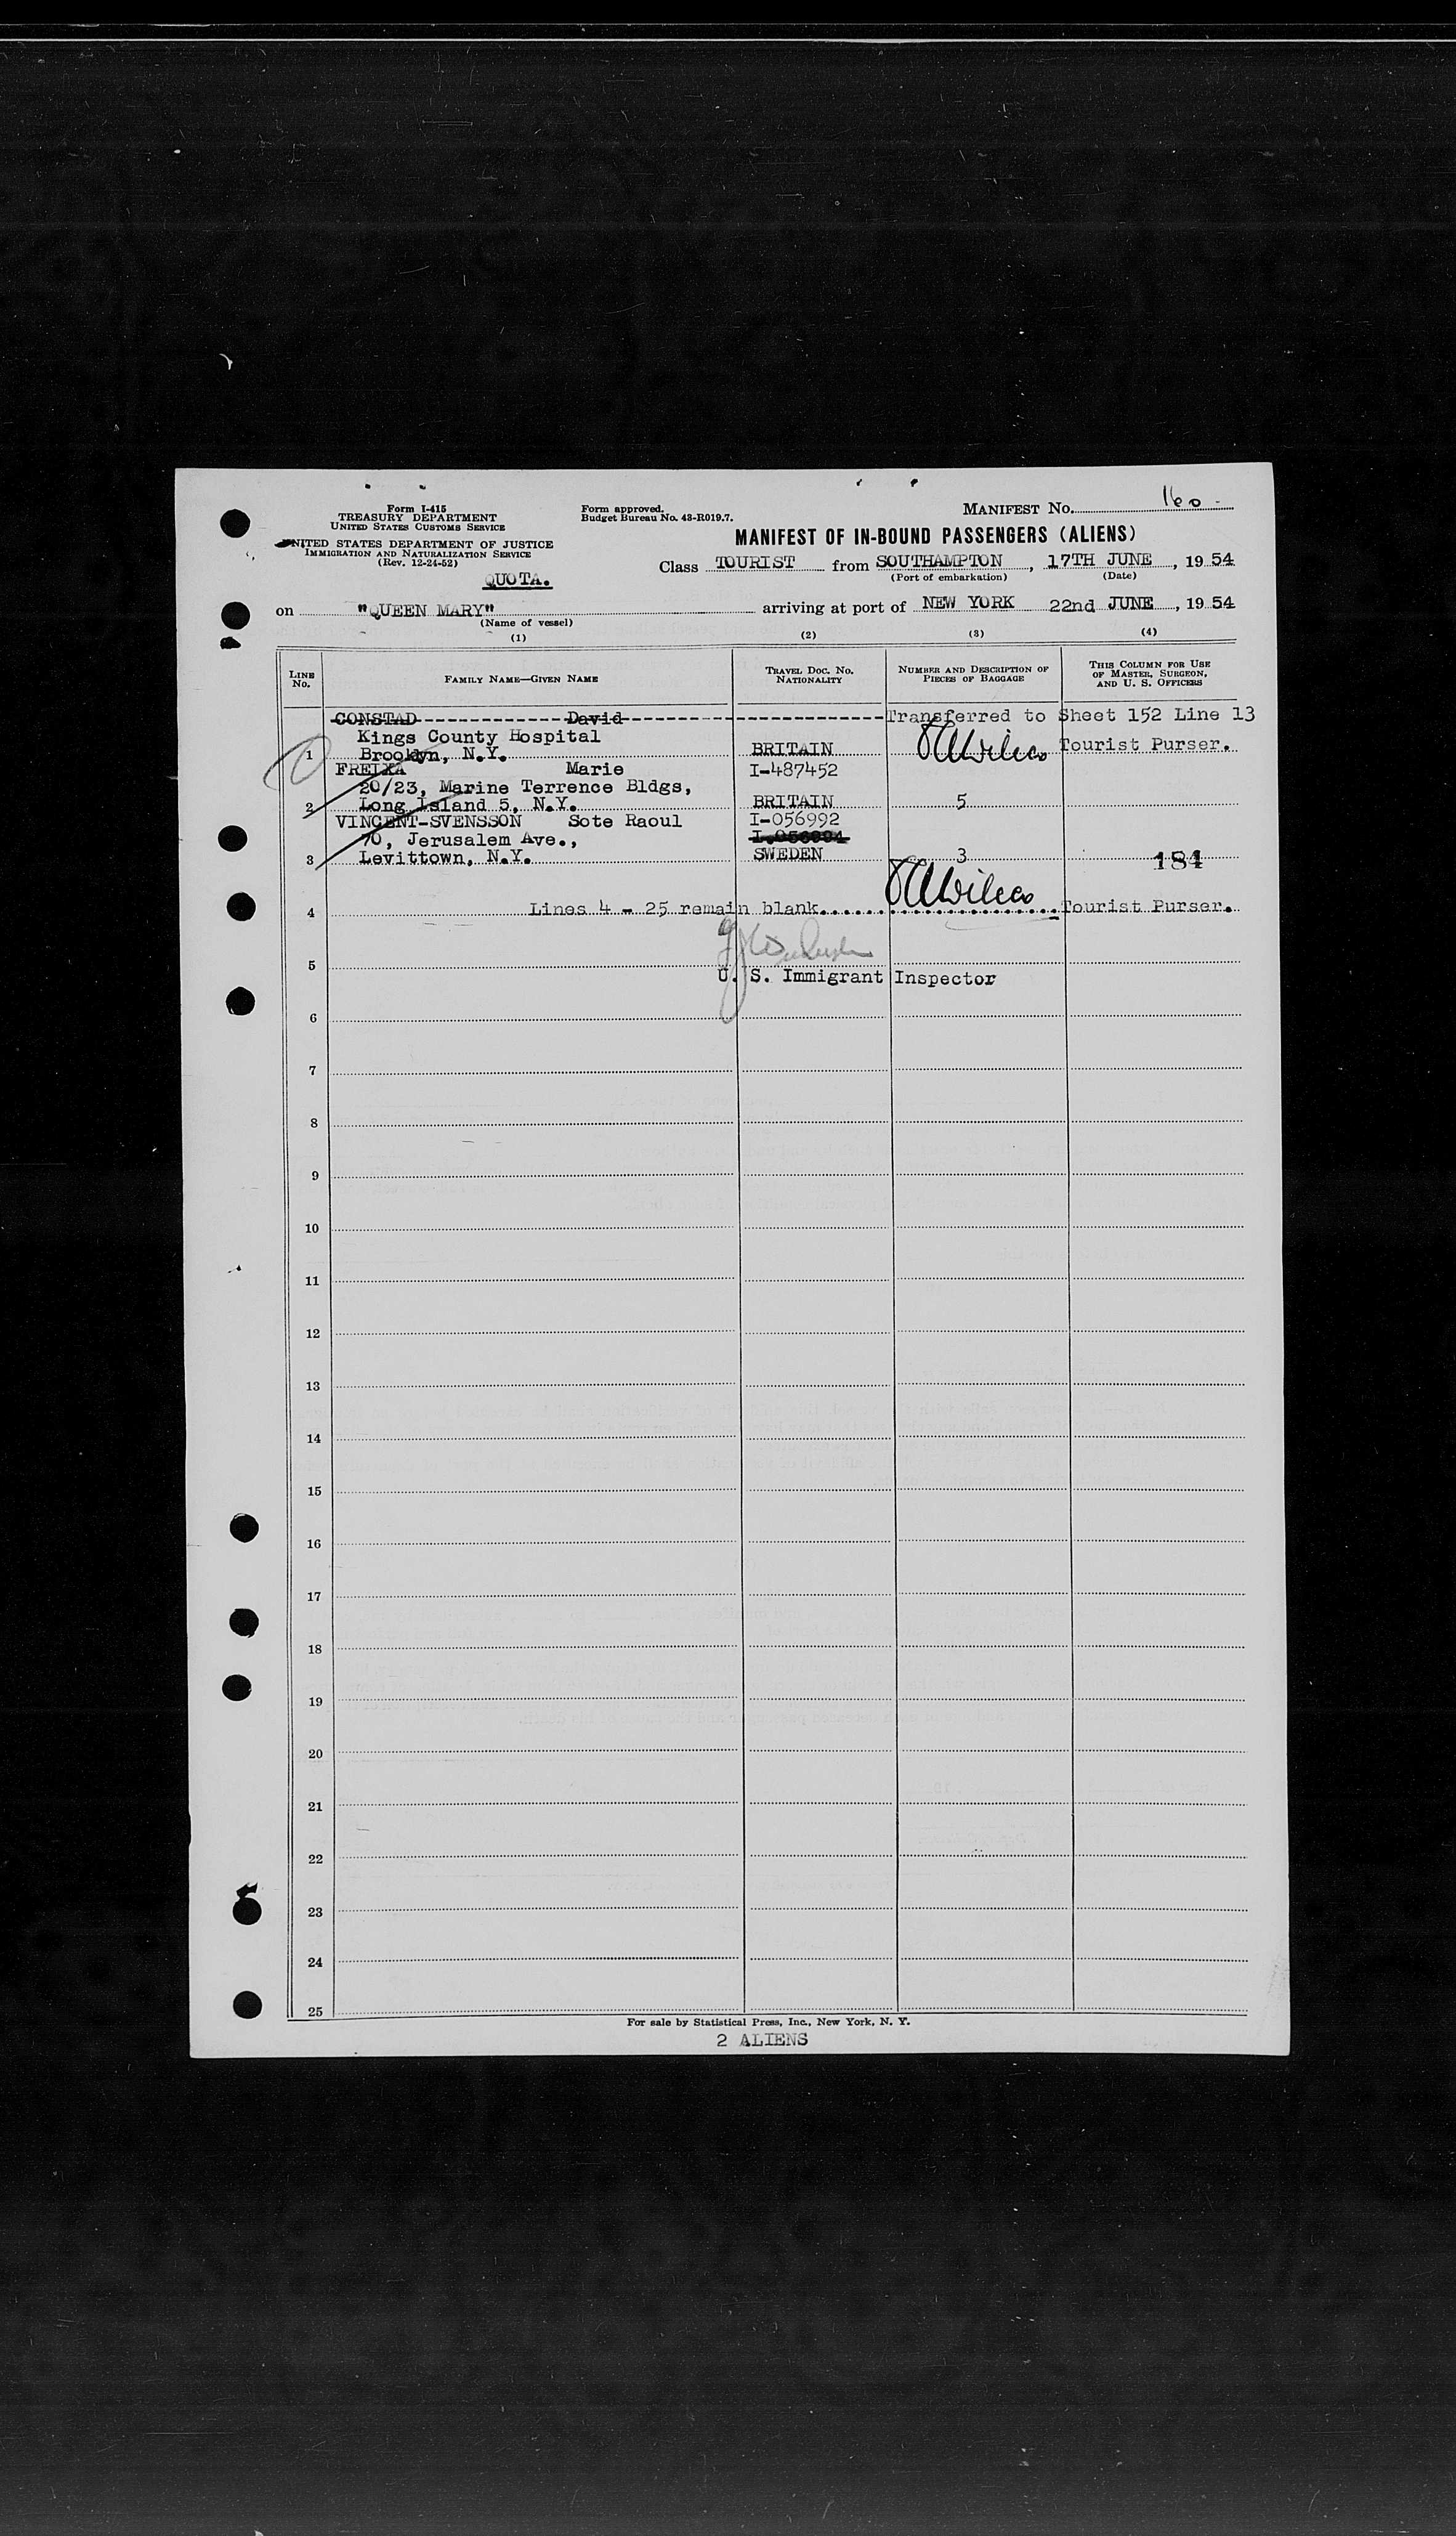 160
Form I-415
TREASURY DEPARTMENT
UNITED STATES CUSTOMS SERVICE
Form approved.
Budget Bureau No. 43-R019.7.
MANIFEST No.
UNITED STATES DEPARTMENT OF JUSTICE
IMMIGRATION AND NATURALIZATION SERVICE
(Rev. 12-24-52)
MANIFEST OF IN-BOUND PASSENGERS (ALIENS)
QUOTA.
Class TOURIST from SOUTHAMPTON, 17TH JUNE, 19 54
(Port of embarkation) (Date)
on "QUEEN MARY" arriving at port of NEW YORK 22nd JUNE, 19 54
(Name of vessel)
(1) (2) (3) (4)
LINE No. FAMILY NAME—GIVEN NAME TRAVEL DOC. No. NATIONALITY NUMBER AND DESCRIPTION OF PIECES OF BAGGAGE THIS COLUMN FOR USE OF MASTER, SURGEON, AND U. S. OFFICERS
CONSTAD David Transferred to Sheet 152 Line 13
Kings County Hospital
1 Brooklyn, N.Y. BRITAIN Tourist Purser.
FREIXA Marie I-487452
20/23, Marine Terrence Bldgs,
2 Long Island 5, N.Y. BRITAIN 5
VINCENT-SVENSSON Sote Raoul I-056992
70, Jerusalem Ave., I-056994
3 Levittown, N.Y. SWEDEN 3 184
4 Lines 4 - 25 remain blank. Tourist Purser.
5
U. S. Immigrant Inspector
6
7
8
9
10
11
12
13
14
15
16
17
18
19
20
21
22
23
24
25
For sale by Statistical Press, Inc., New York, N. Y.
2 ALIENS